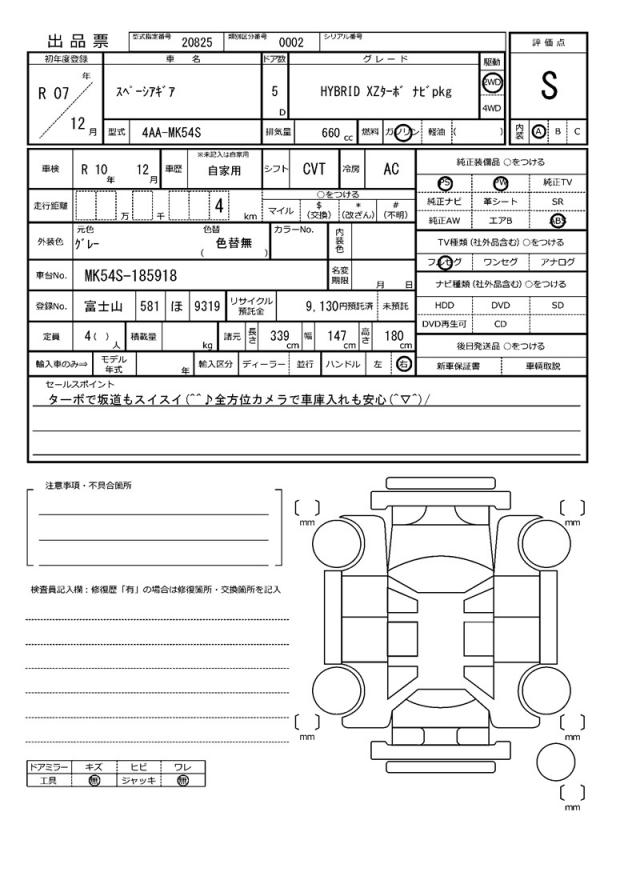 出品票 型式指定番号 20825 類別区分番号 0002 シリアル番号
評価点
S
初年度登録 車名 ドア数 グレード 駆動
R 07 年 12 月
ｽﾍﾟｰｼｱｷﾞｱ 5 D HYBRID XZﾀｰﾎﾞ ﾅﾋﾞpkg 2WD 4WD
型式 4AA-MK54S 排気量 660 cc 燃料 ガソリン 軽油 ( )
内装 A B C
車検 R 10 年 12 月 車歴 ※未記入は自家用 自家用 シフト CVT 冷房 AC
純正装備品 ○をつける
PS PW 純正TV
純正ナビ 革シート SR
純正AW エアB ABS
走行距離 万 千 4 km
○をつける
マイル $(交換) *(改ざん) #(不明)
外装色 元色 ｸﾞﾚｰ 色替 ( 色替無 ) カラーNo. 内装色
TV種類(社外品含む) ○をつける
フルセグ ワンセグ アナログ
車台No. MK54S-185918 名変期限 月 日
ナビ種類(社外品含む) ○をつける
HDD DVD SD
DVD再生可 CD
登録No. 富士山 581 ほ 9319 リサイクル預託金 9,130円預託済 未預託
定員 4 ( ) 人 積載量 kg 諸元 長さ 339 cm 幅 147 cm 高さ 180 cm
後日発送品 ○をつける
新車保証書 車輌取説
輸入車のみ⇒ モデル年式 年 輸入区分 ディーラー 並行 ハンドル 左 右
セールスポイント
ターボで坂道もスイスイ(^^♪全方位カメラで車庫入れも安心(^▽^)/
注意事項・不具合箇所
検査員記入欄：修復歴「有」の場合は修復箇所・交換箇所を記入
mm
mm
mm
mm
mm
ドアミラー キズ ヒビ ワレ
工具 無 ジャッキ 無